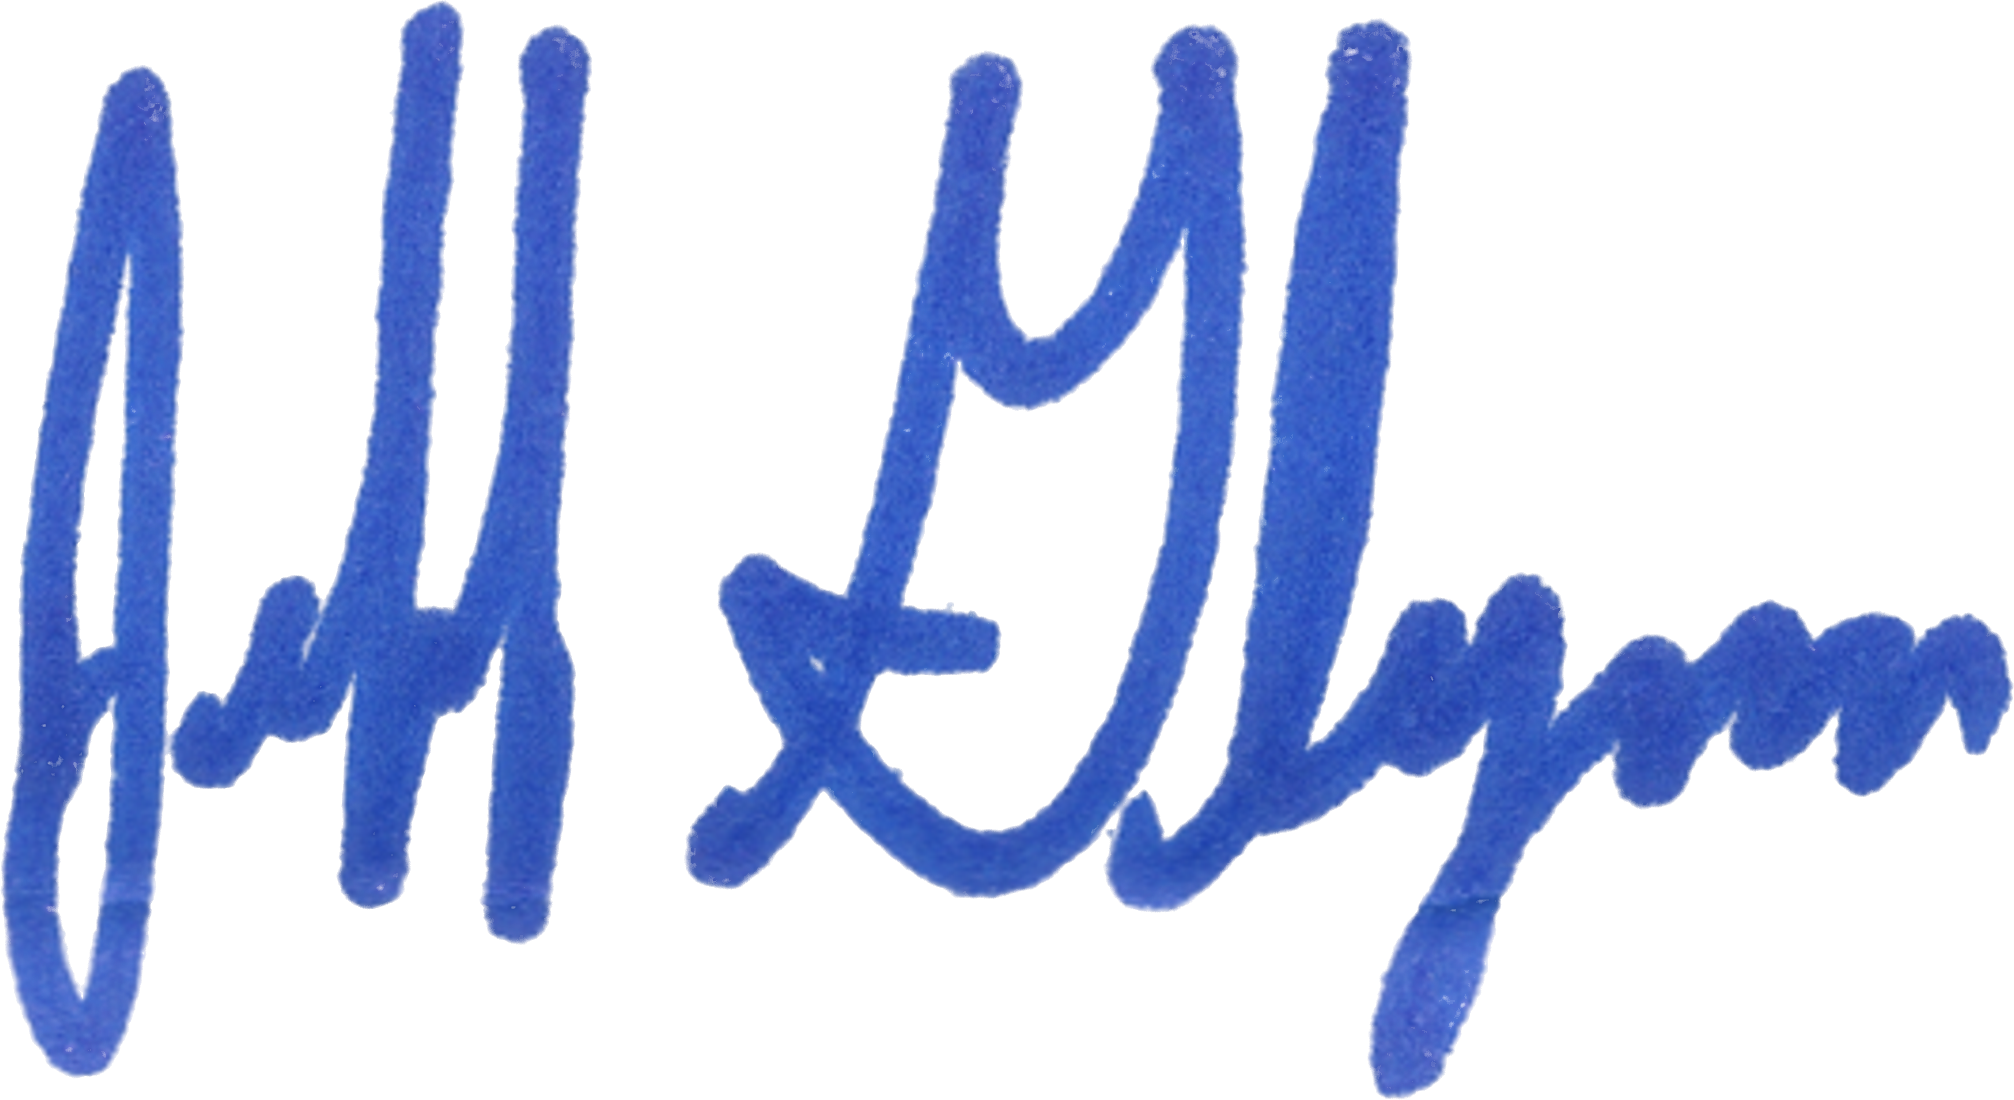 Jeff Glynn